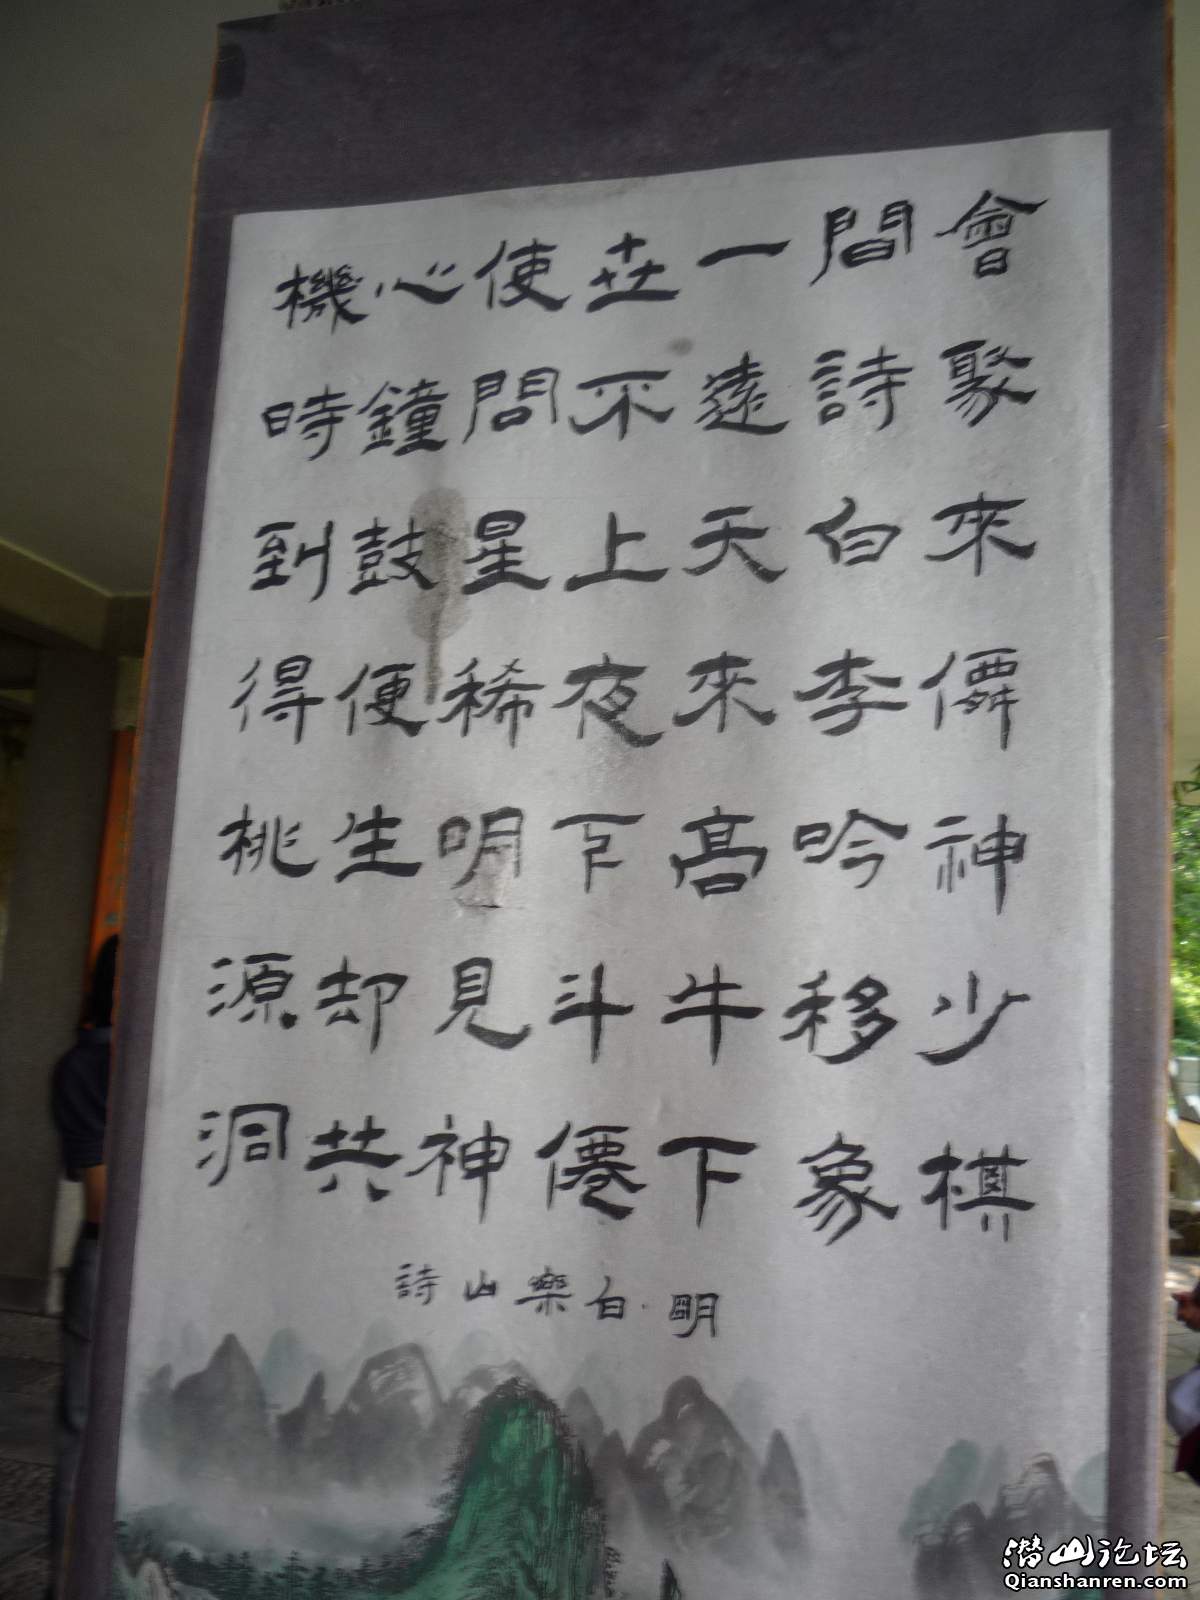 會聚來僊神少棋
間詩白李吟移象
一遠天來高牛下
世不上夜下斗僊
使問星稀明見神
心鐘鼓便生却共
機時到得桃源洞
明·白樂山詩
潜山论坛
Qianshanren.com